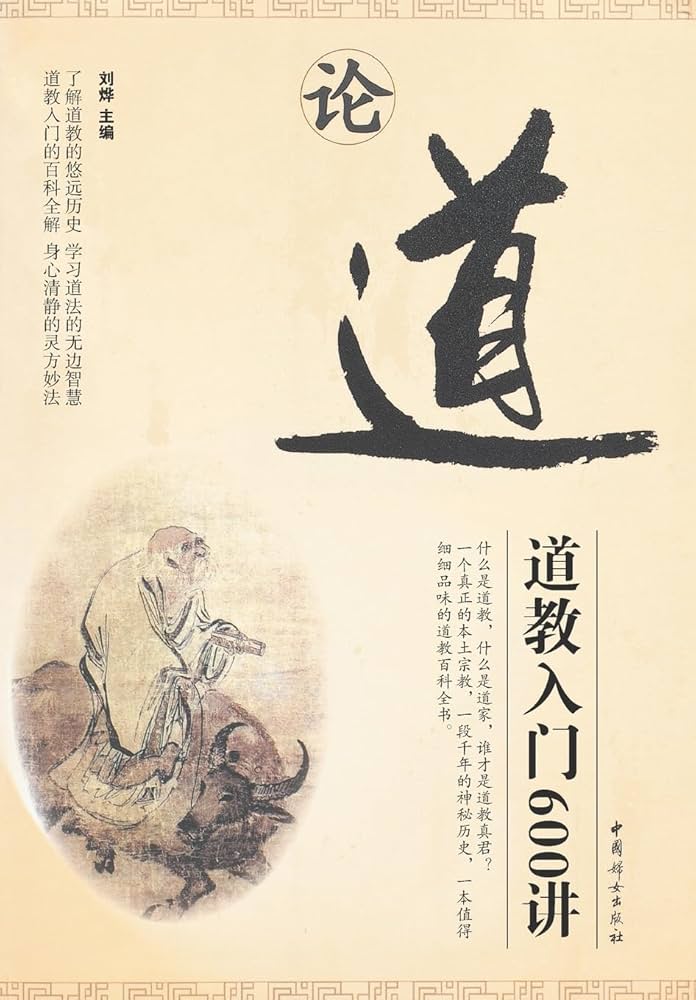 论
道
道教入门600讲
刘烨 主编
了解道教的悠远历史 学习道法的无边智慧
道教入门的百科全解 身心清静的灵方妙法
什么是道教，什么是道家，谁才是道教真君？
一个真正的本土宗教，一段千年的神秘历史，一本值得
细细品味的道教百科全书。
中國婦女出版社